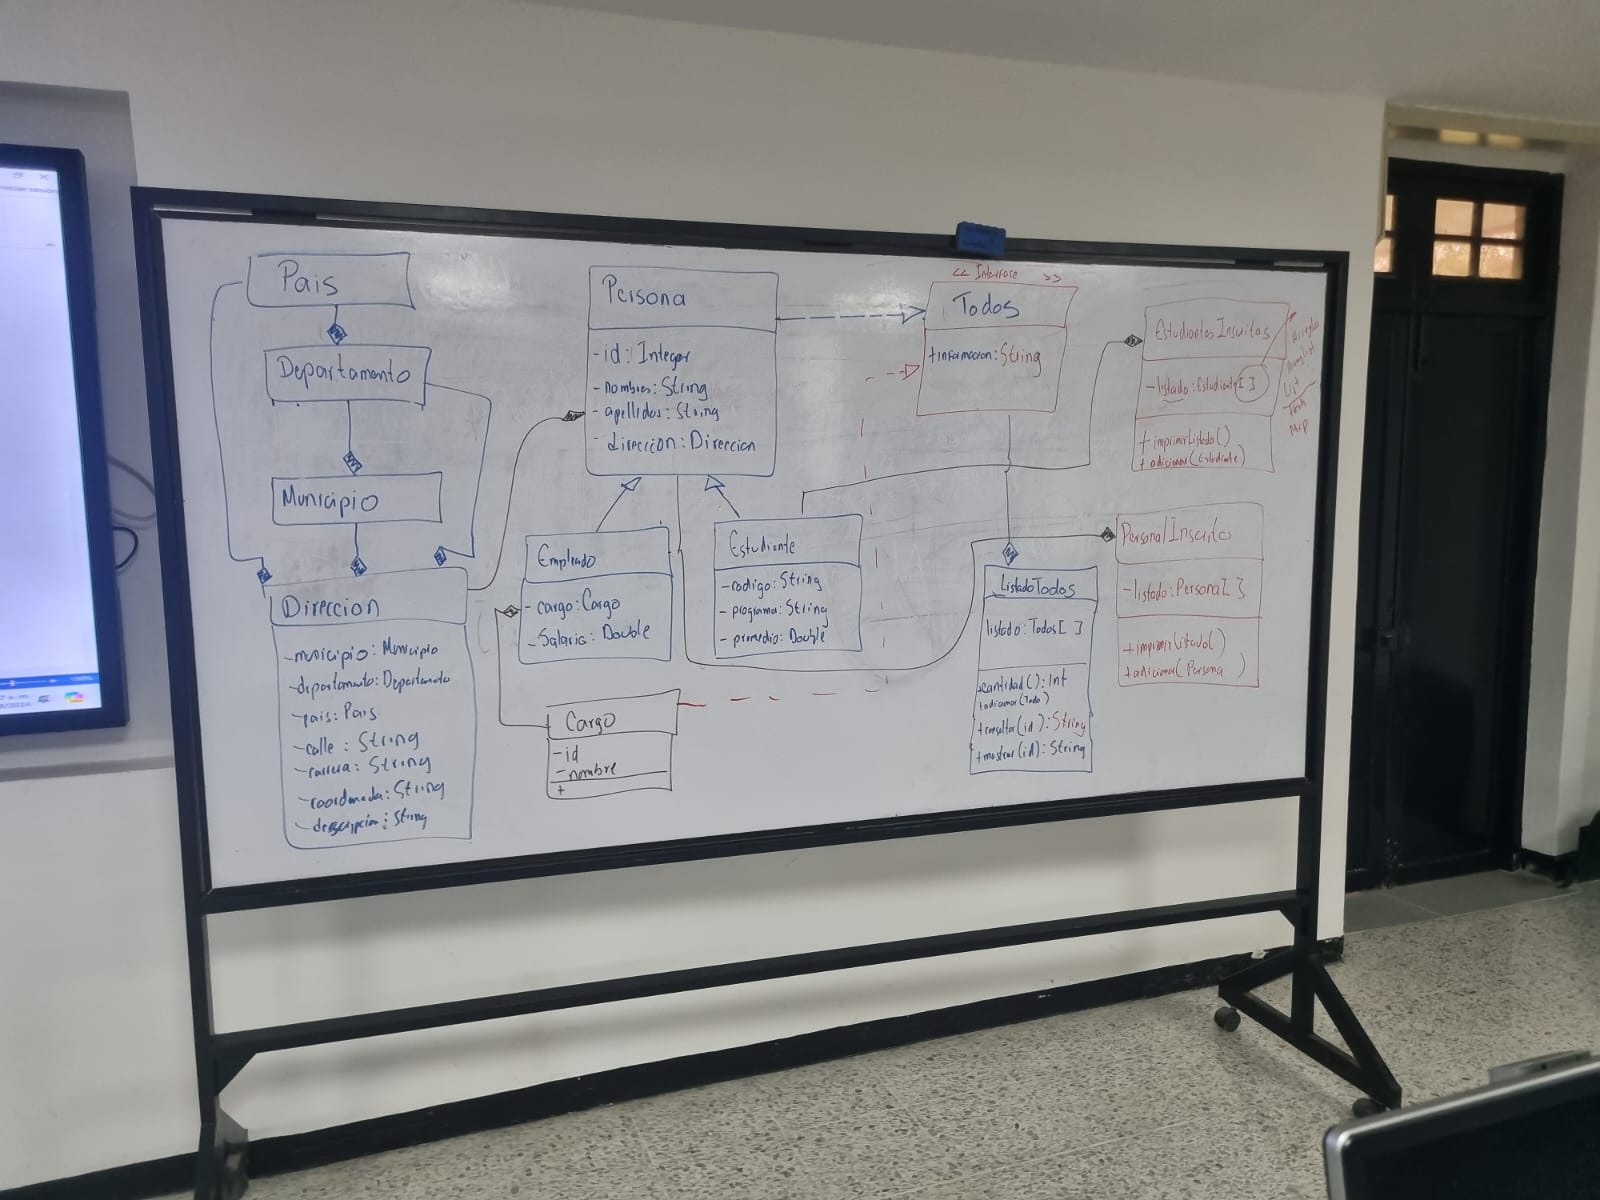 Pais
Departamento
Municipio
Direccion
-municipio: Municipio
-departamento: Departamento
-pais: Pais
-calle: String
-carrera: String
-coordenada: String
-descripción: String
Persona
-id: Integer
-nombres: String
-apellidos: String
-direccion: Direccion
Empleado
- cargo: Cargo
-Salario: Double
Estudiante
-codigo: String
-programa: String
-promedio: Double
Cargo
-id
-nombre
+
<< Interface >>
Todos
+informacion: String
ListadoTodos
listado: Todos[ ]
+cantidad(): Int
+adicionar(Todo)
+consultar(id): String
+mostrar(id): String
EstudiantesInscritos
-listado: Estudiante[ ]
+imprimirListado()
+ adicionar(Estudiante)
Arraylist
List
PersonalInscrito
-listado: Persona[ ]
+imprimirListado()
+adicionar(Persona )